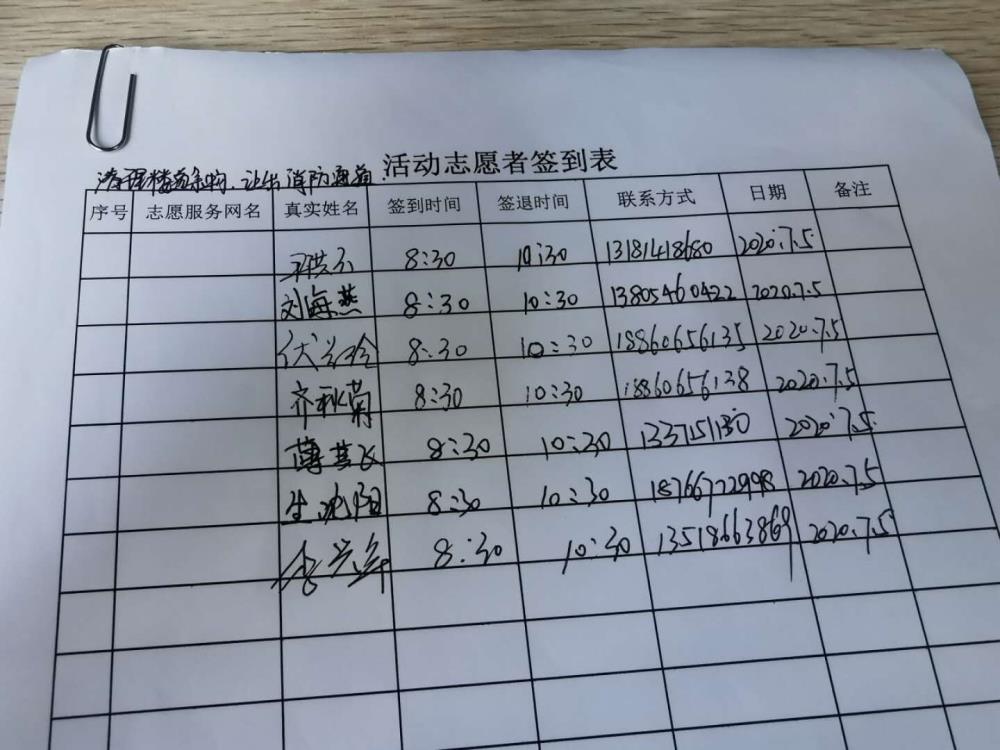 活动志愿者签到表
清理楼道杂物,让出消防通道
序号 志愿服务网名 真实姓名 签到时间 签退时间 联系方式 日期 备注
8:30 10:30 13181418680 2020.7.5
刘海燕 8:30 10:30 13805460422 2020.7.5
8:30 10:30 18860656135 2020.7.5
齐秋菊 8:30 10:30 18860656138 2020.7.5
薄其飞 8:30 10:30 2020.7.5
生沈阳 8:30 10:30 18766772998 2020.7.5
8:30 10:30 13518663869 2020.7.5